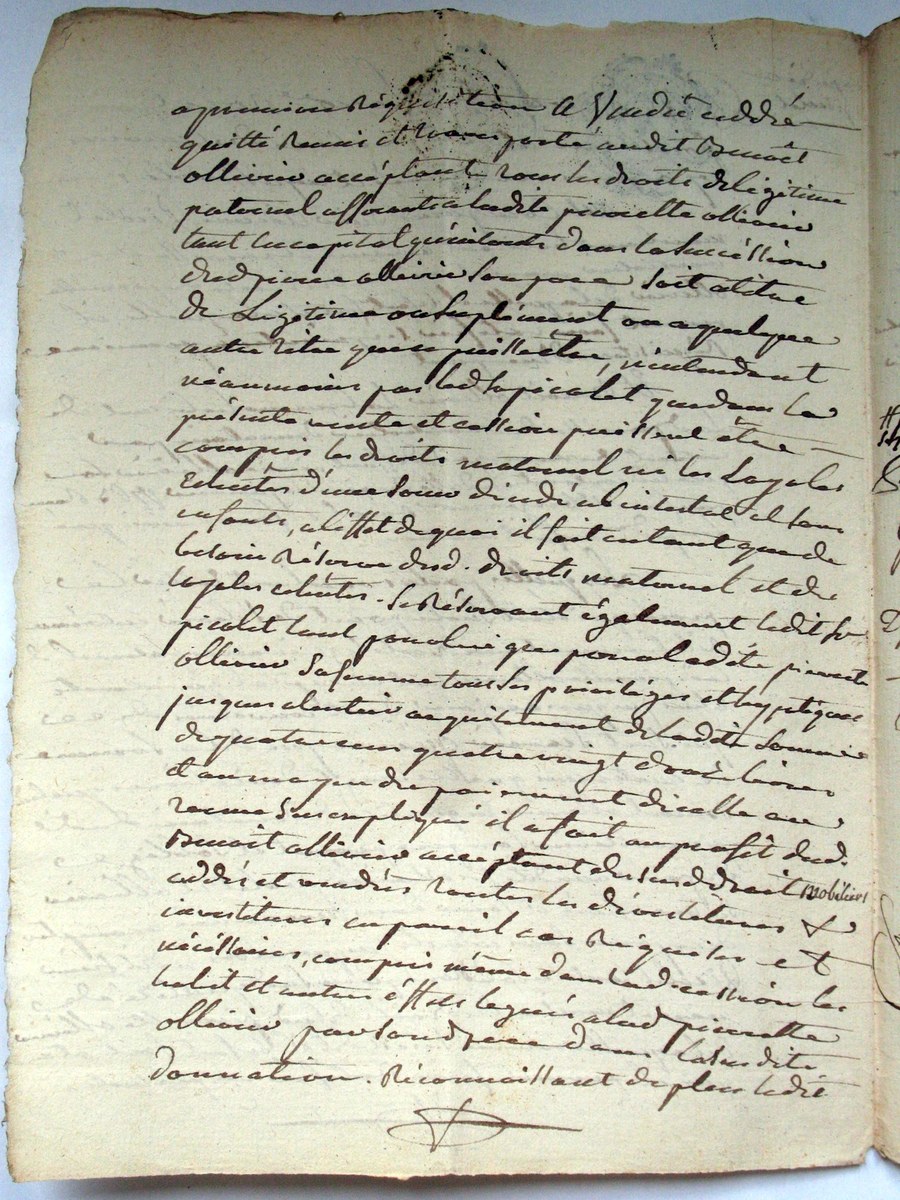 a premiere Requisition A Vendu ceddé
quitté Remis et transporté audit Benoît
ollivier acceptant tous les droits de legitime
paternel afferants a ladite pierrette ollivier
tant en capital qu'interets dans la succéssion
dud pierre ollivier son pere soit a titre
de Legitime ou suplément ou a quelque
autre titre que ce puisse etre, n'entendant
néanmoins pas led Sr picolet que dans la
présente vente et cession puissent être
compris les droits maternel ni les Legales
Echeutes d'une soeur décédé abintestat et sans
enfants, a l'effet de quoi il fait en tant que de
besoin Réserve desd. droits maternel et de
legales echeutes. Se Réservant également ledit Sr
picolet tant pour lui que pour ladite pierrette
ollivier sa femme tous les privilèges et hypotéques
jusques a l'entier acquittement de ladite somme
de quatre cens quatre vingt livres
et au moyen du paiement d'icelle au
terme sus expliqué il a fait au profit dud.
Benoit ollivier acceptant des susd droit mobiliers
ceddés et vendus toutes les dévestitures &
investitures en pareil cas Réquises et
nécéssaires, compris même dans lad. cession les
habit et autres éffets legués a lad pierrette
ollivier par son d pere dans la susdite
donnation. Réconnaissant de plus ledit